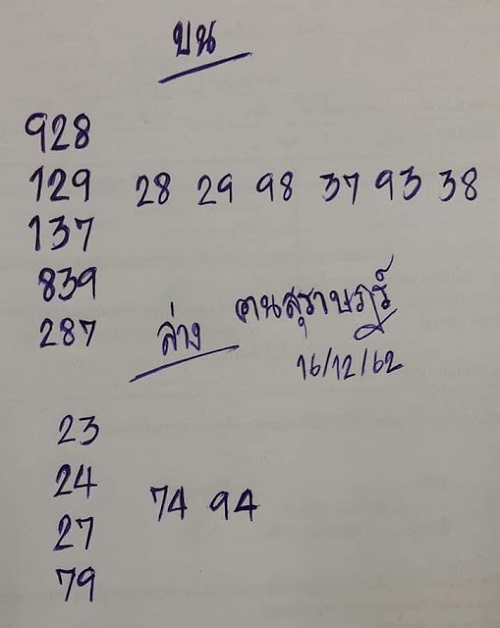 บน
928
129 28 29 98 37 93 38
137
839
287
ล่าง คนสุราษฎร์
16/12/62
23
24
74 94
27
79